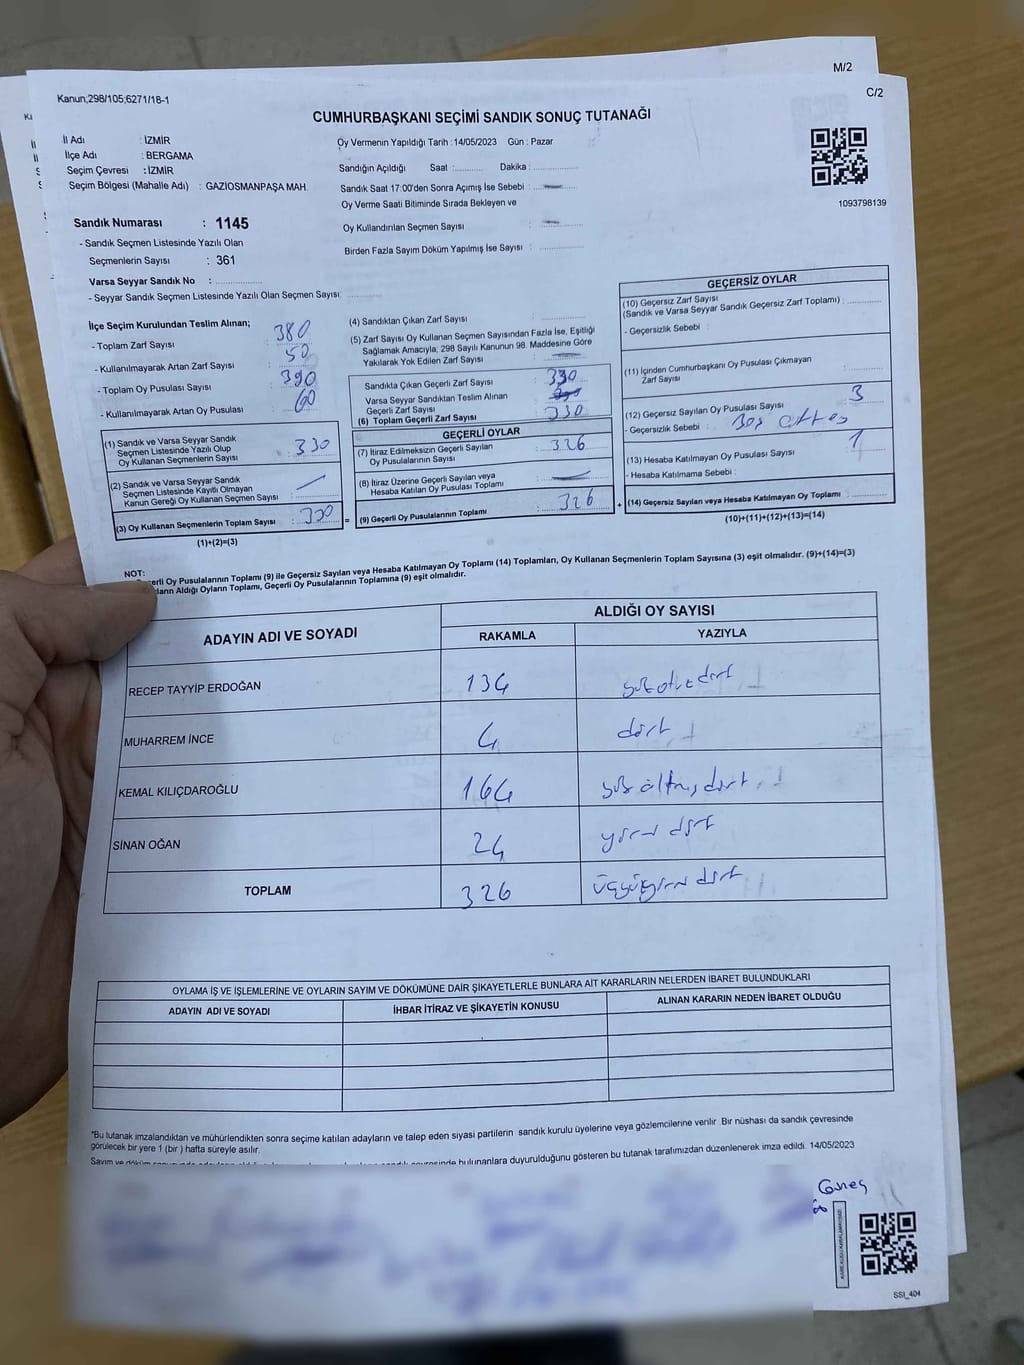 M/2
C/2
Kanun;298/105;6271/18-1
CUMHURBAŞKANI SEÇİMİ SANDIK SONUÇ TUTANAĞI
İl Adı : İZMİR
İlçe Adı : BERGAMA
Seçim Çevresi : İZMİR
Seçim Bölgesi (Mahalle Adı) : GAZİOSMANPAŞA MAH.
Oy Vermenin Yapıldığı Tarih : 14/05/2023 Gün : Pazar
Sandığın Açıldığı Saat : Dakika :
Sandık Saat 17:00'den Sonra Açımış İse Sebebi : —
Oy Verme Saati Bitiminde Sırada Bekleyen ve
Oy Kullandırılan Seçmen Sayısı : —
Birden Fazla Sayım Döküm Yapılmış İse Sayısı :
1093798139
Sandık Numarası : 1145
- Sandık Seçmen Listesinde Yazılı Olan
Seçmenlerin Sayısı : 361
Varsa Seyyar Sandık No :
- Seyyar Sandık Seçmen Listesinde Yazılı Olan Seçmen Sayısı:
İlçe Seçim Kurulundan Teslim Alınan;
- Toplam Zarf Sayısı : 380
- Kullanılmayarak Artan Zarf Sayısı : 50
- Toplam Oy Pusulası Sayısı : 390
- Kullanılmayarak Artan Oy Pusulası : 60
(1) Sandık ve Varsa Seyyar Sandık
Seçmen Listesinde Yazılı Olup
Oy Kullanan Seçmenlerin Sayısı : 330
(2) Sandık ve Varsa Seyyar Sandık
Seçmen Listesinde Kayıtlı Olmayan
Kanun Gereği Oy Kullanan Seçmen Sayısı : —
(3) Oy Kullanan Seçmenlerin Toplam Sayısı : 330
(1)+(2)=(3)
(4) Sandıktan Çıkan Zarf Sayısı :
(5) Zarf Sayısı Oy Kullanan Seçmen Sayısından Fazla İse, Eşitliği
Sağlamak Amacıyla, 298 Sayılı Kanunun 98. Maddesine Göre
Yakılarak Yok Edilen Zarf Sayısı : —
Sandıkta Çıkan Geçerli Zarf Sayısı : 330
Varsa Seyyar Sandıktan Teslim Alınan
Geçerli Zarf Sayısı :
(6) Toplam Geçerli Zarf Sayısı : 330
GEÇERLİ OYLAR
(7) İtiraz Edilmeksizin Geçerli Sayılan
Oy Pusulalarının Sayısı : 326
(8) İtiraz Üzerine Geçerli Sayılan veya
Hesaba Katılan Oy Pusulası Toplamı : —
(9) Geçerli Oy Pusulalarının Toplamı : 326
GEÇERSİZ OYLAR
(10) Geçersiz Zarf Sayısı
(Sandık ve Varsa Seyyar Sandık Geçersiz Zarf Toplamı) :
- Geçersizlik Sebebi :
(11) İçinden Cumhurbaşkanı Oy Pusulası Çıkmayan
Zarf Sayısı :
(12) Geçersiz Sayılan Oy Pusulası Sayısı : 3
- Geçersizlik Sebebi : Boş
(13) Hesaba Katılmayan Oy Pusulası Sayısı : 1
- Hesaba Katılmama Sebebi :
(14) Geçersiz Sayılan veya Hesaba Katılmayan Oy Toplamı :
(10)+(11)+(12)+(13)=(14)
NOT:
Oy Pusulalarının Toplamı (9) ile Geçersiz Sayılan veya Hesaba Katılmayan Oy Toplamı (14) Toplamları, Oy Kullanan Seçmenlerin Toplam Sayısına (3) eşit olmalıdır. (9)+(14)=(3)
Aldığı Oyların Toplamı, Geçerli Oy Pusulalarının Toplamına (9) eşit olmalıdır.
ADAYIN ADI VE SOYADI
ALDIĞI OY SAYISI
RAKAMLA YAZIYLA
RECEP TAYYİP ERDOĞAN 134 yüz otuz dört
MUHARREM İNCE 4 dört
KEMAL KILIÇDAROĞLU 164 yüz altmış dört
SİNAN OĞAN 24 yirmi dört
TOPLAM 326 üçyüzyirmi dört
OYLAMA İŞ VE İŞLEMLERİNE VE OYLARIN SAYIM VE DÖKÜMÜNE DAİR ŞİKAYETLERLE BUNLARA AİT KARARLARIN NELERDEN İBARET BULUNDUKLARI
ADAYIN ADI VE SOYADI İHBAR İTİRAZ VE ŞİKAYETİN KONUSU ALINAN KARARIN NEDEN İBARET OLDUĞU
*Bu tutanak imzalandıktan ve mühürlendikten sonra seçime katılan adayların ve talep eden siyasi partilerin sandık kurulu üyelerine veya gözlemcilerine verilir. Bir nüshası da sandık çevresinde
görülecek bir yere 1 (bir ) hafta süreyle asılır.
Sayım ve döküm bulunanlara duyurulduğunu gösteren bu tutanak tarafımızdan düzenlenerek imza edildi. 14/05/2023
Güneş
SSI_404